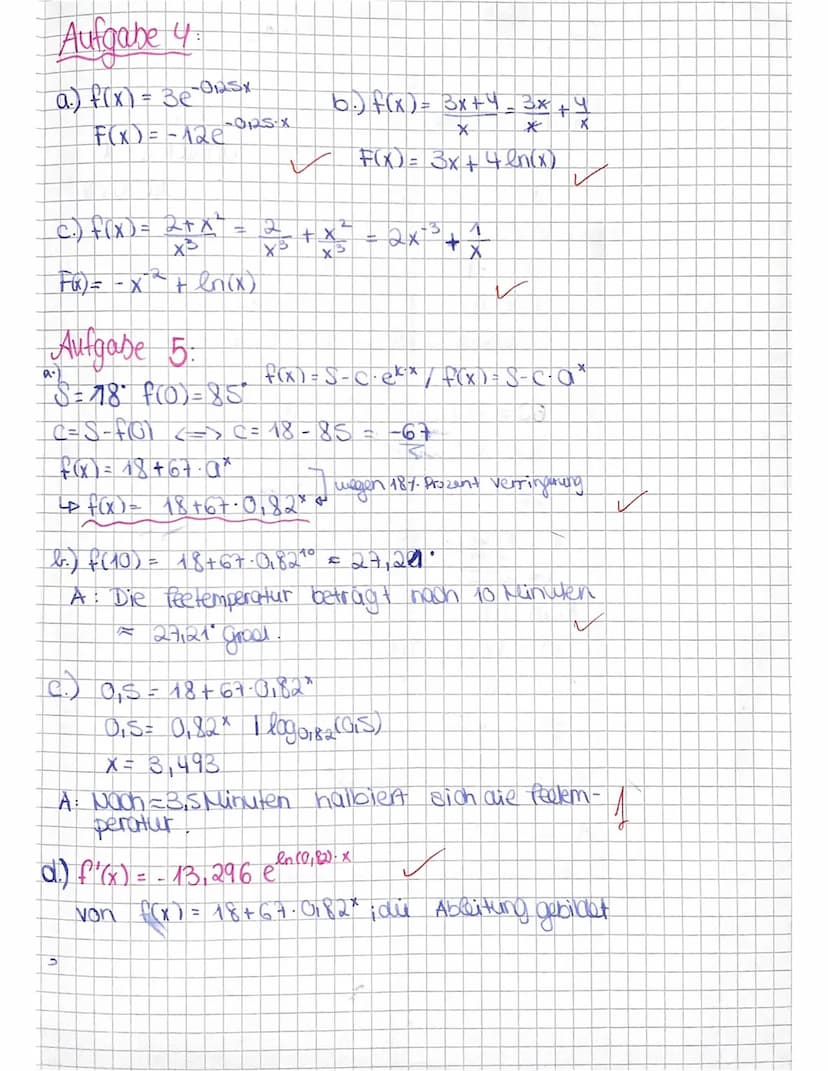 Aufgabe 4:
a.) f(x) = 3e^-0,25x
F(x) = -12e^-0,25·x
b.) f(x) = (3x+4)/x = 3x/x + 4/x
F(x) = 3x + 4 ln(x)
c.) f(x) = (2+x²)/x³ = 2/x³ + x²/x³ = 2x^-3 + 1/x
F(x) = -x^-2 + ln(x)
Aufgabe 5:
a.)
f(x) = S-C·e^k·x / f(x) = S-C·a^x
S = 18° f(0) = 85°
C = S-f(0) <=> C = 18 - 85 = -67
f(x) = 18+67·a^x
↳ f(x) = 18+67·0,82^x ] wegen 18% Prozent verringerung
b.) f(10) = 18+67·0,82^10 = 27,21°
A: Die Teetemperatur beträgt nach 10 Minuten
≈ 27,21° Grad.
c.) 0,5 = 18+67·0,82^x
0,5 = 0,82^x | log0,82(0,5)
x = 3,493
A: Nach ≈ 3,5 Minuten halbiert sich die Teetem-
peratur.
d.) f'(x) = -13,296 e^ln(0,82)·x
von f(x) = 18+67·0,82^x ; die Ableitung gebildet